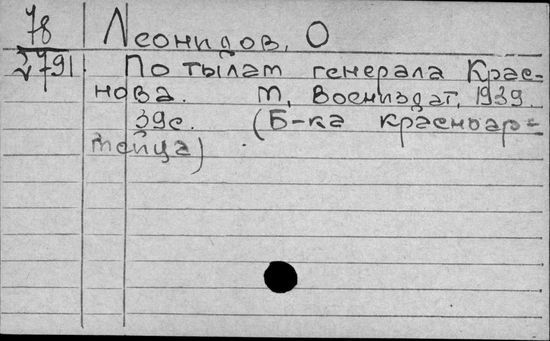 78
2791
Леонидов, О
По тылам генерала Крас-
нова. М, Воениздат, 1939.
39с. (Б-ка красноар-
мейца)